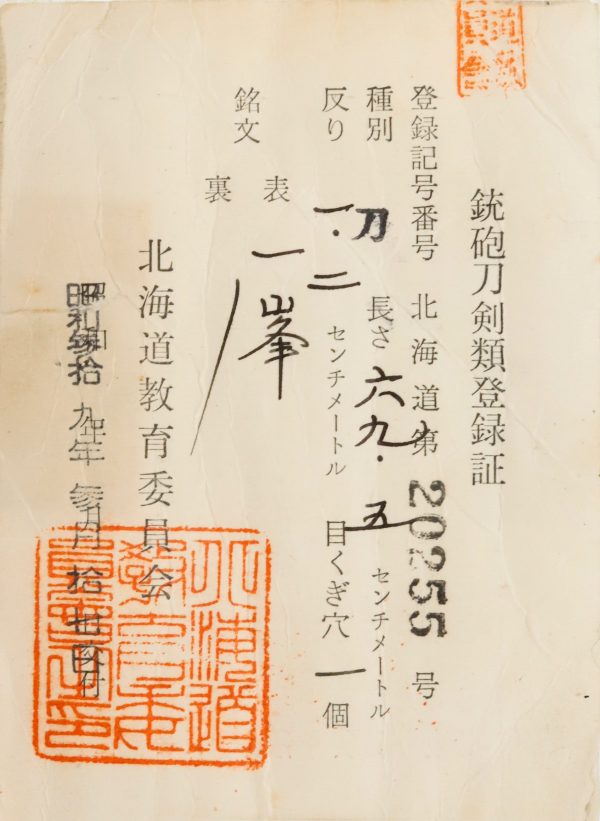 銃砲刀剣類登録証
登録記号番号 北海道第 20255 号
種別 刀 長さ 六九.五 センチメートル
反り 一.二 センチメートル 目くぎ穴 一 個
銘文
表 一峯
裏
北海道教育委員会
昭和参拾九年 参月 拾 日付
北海道
教育委